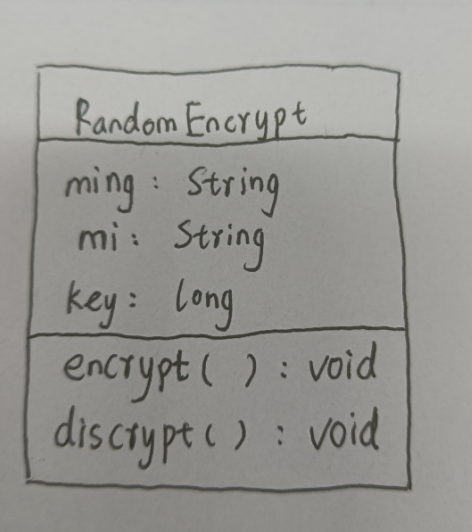 RandomEncrypt
ming: String
mi: String
key: long
encrypt( ): void
discrypt( ): void